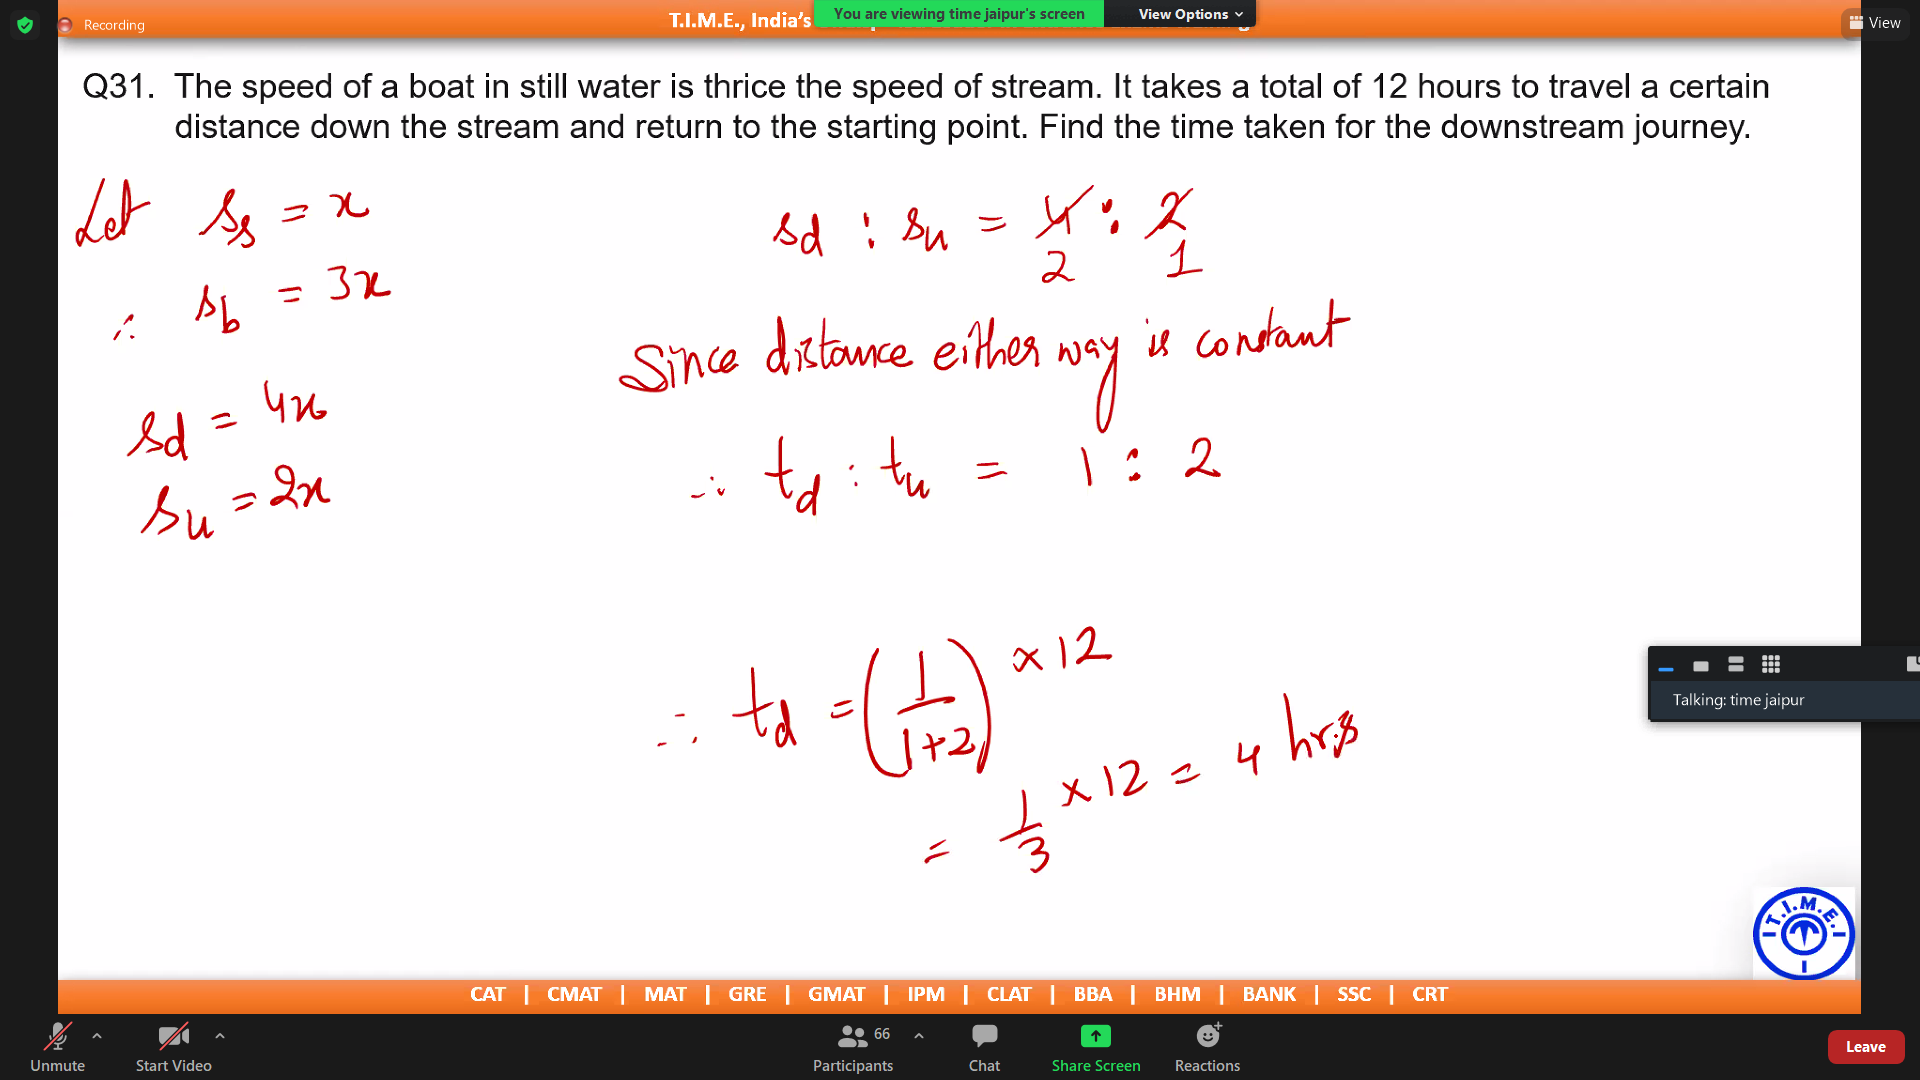 Recording
T.I.M.E., India's
You are viewing time jaipur's screen
View Options
View
Q31. The speed of a boat in still water is thrice the speed of stream. It takes a total of 12 hours to travel a certain
distance down the stream and return to the starting point. Find the time taken for the downstream journey.
Let s_s = x
∴ s_b = 3x
s_d = 4x
s_u = 2x
s_d : s_u = 4 : 2
2 1
Since distance either way is constant
∴ t_d : t_u = 1 : 2
∴ t_d = (1/(1+2)) × 12
= 1/3 × 12 = 4 hrs
Talking: time jaipur
T.I.M.E.
CAT | CMAT | MAT | GRE | GMAT | IPM | CLAT | BBA | BHM | BANK | SSC | CRT
Unmute
Start Video
66
Participants
Chat
Share Screen
Reactions
Leave